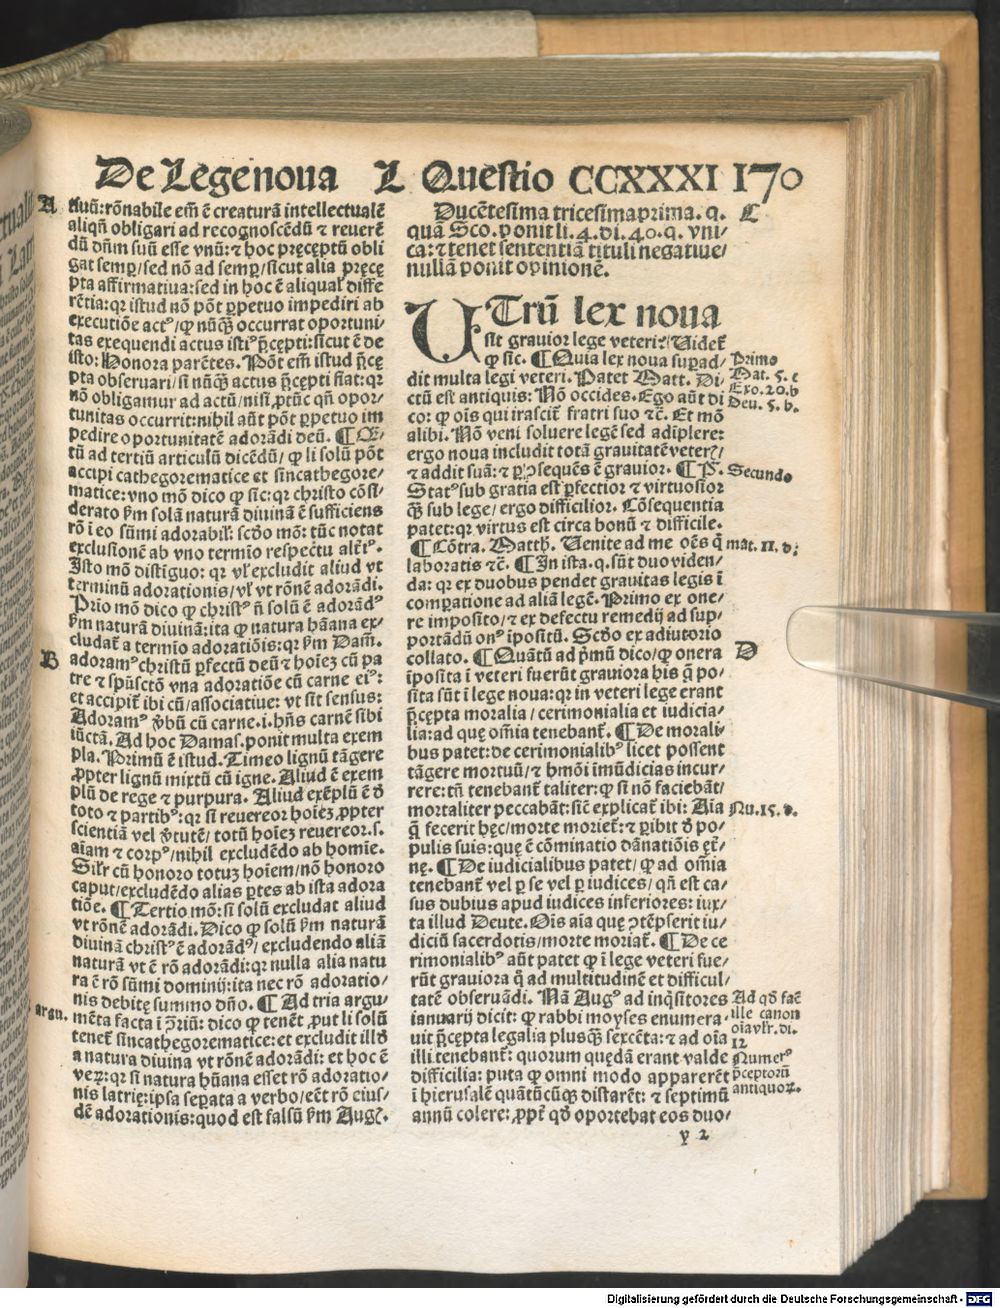 De Lege noua L Questio CCXXXI 170
A
tiuũ: rõnabile em̃ ẽ creaturã intellectualẽ
aliqñ obligari ad recognoscẽdũ ⁊ reuerẽ
dũ dñm suũ esse vnũ: ⁊ hoc pręceptũ obli
gat semꝑ/ sed nõ ad semꝑ/ sicut alia pręce
pta affirmatiua: sed in hoc ẽ aliqual̃ diffe
rẽtia: qꝛ istud nõ põt ꝑpetuo impediri ab
executiõe actꝰ/ ꝙ nũꝗ̃ occurrat oportuni/
tas exequendi actus isti p̃cepti: sicut ẽ de
isto: Honora parẽtes. Põt em̃ istud p̃ce
pta obseruari/ si nũꝗ̃ actus p̃cepti fiat: qꝛ
nõ obligamur ad actũ/ nisi ꝓ tũc qñ opoꝛ/
tunitas occurrit: nihil aũt põt ꝑpetuo im
pedire oportunitatẽ adorãdi deũ. ¶ Quã/
tũ ad tertiũ articulũ dicẽdũ/ ꝙ li solũ põt
accipi cathegorematice et sincathegore/
matice: vno mõ dico ꝙ sic: qꝛ christo cõsi/
derato ẜm solã naturã diuinã ẽ sufficiens
rõ ĩ eo sũmi adorabil̃: scd̃o mõ: tũc notat
exclusionẽ ab vno termĩo respectu alteriꝰ.
Isto mõ distiguo: qꝛ vl̃ excludit aliud vt
terminũ adorationis/ vl̃ vt rõnẽ adorãdi.
Prĩo mõ dico ꝙ christꝰ ñ solũ ẽ adorãdꝰ
ẜm naturã diuinã: ita ꝙ natura hũana ex/
cludat̃ a termĩo adoratiõis: qꝛ ẜm Dam̃.
B
adoramꝰ christũ ꝑfectũ deũ ⁊ hoĩeꝫ cũ pa
tre ⁊ spũsctõ vna adoratiõe cũ carne eiꝰ:
et accipit̃ ibi cũ/ associatiue: vt sit sensus:
Adoramꝰ ꝟbũ cũ carne .i. hñs carnẽ sibi
iũctã. Ad hoc Damas. ponit multa exem
pla. Primũ ẽ istud. Timeo lignũ tãgere
ꝓpter lignũ mixtũ cũ igne. Aliud ẽ exem
plũ de rege ⁊ purpura. Aliud exẽplũ ẽ ð
toto ⁊ partibꝰ: qꝛ si reuereor hoĩeꝫ ꝓpter
scientiã vel ꝟtutẽ/ totũ hoĩeꝫ reuereor .s.
aĩam ⁊ corpꝰ/ nihil excludẽdo ab homĩe.
Sil̃r cũ honoro totuꝫ hoĩem/ nõ honoro
caput/ excludẽdo alias ꝑtes ab ista adora
tiõe. ¶ Tertio mõ: si solũ excludat aliud
vt rõnẽ adorãdi. Dico ꝙ solũ ẜm naturã
diuinã christꝰ ẽ adorãdꝰ/ excludendo aliã
naturã vt ẽ rõ adorãdi: qꝛ nulla alia natu
ra ẽ rõ sũmi dominij: ita nec rõ adoratio/
nis debitę summo dño. ¶ Ad tria argu
argu.
mẽta facta ĩ ꝯriũ: dico ꝙ tenẽt ꝓut li solũ
tenet̃ sincathegorematice: et excludit illð
a natura diuina vt rõnẽ adorãdi: et hoc ẽ
veꝝ: qꝛ si natura hũana esset rõ adoratio/
nis latrię: ipsa seꝑata a verbo/ eẽt rõ eius/
dẽ adorationis: quod est falsũ ẜm Augꝰ.
Ducẽtesima tricesimaprima. q.
C
quã Sco. ponit li. 4. di. 40. q. vni/
ca: ⁊ tenet sententiã tituli negatiue/
nullã ponit opinionẽ.
UTrũ lex noua
sit grauior lege veteri? Videt̃
ꝙ sic. ¶ Quia lex noua suꝑad/
Primo
dit multa legi veteri. Patet Matt. Di/
Mat. 5. c
ctũ est antiquis: Nõ occides. Ego aũt di
Exo. 20. b
co: ꝙ oĩs qui irascit̃ fratri suo ⁊c̃. Et mõ
Deu. 5. b.
alibi. Nõ veni soluere legẽ sed adĩplere:
ergo noua includit totã grauitatẽ veteꝝ/
⁊ addit suã: ⁊ ꝑ ꝯsequẽs ẽ grauior. ¶ P.
Secundo
Statꝰ sub gratia est ꝑfectior ⁊ virtuosior
ꝗ̃ sub lege/ ergo difficilior. Cõsequentia
patet: qꝛ virtus est circa bonũ ⁊ difficile.
¶ Cõtra. Matth. Venite ad me oẽs q̃
mat. 11. d;
laboratis ⁊c̃. ¶ In ista .q. sũt duo viden/
da: qꝛ ex duobus pendet grauitas legis ĩ
comꝑatione ad aliã legẽ. Primo ex one/
re imposito/ ⁊ ex defectu remedij ad sup/
portãdũ onꝰ ĩpositũ. Scd̃o ex adiutorio
collato. ¶ Quãtũ ad p̃mũ dico/ ꝙ onera
D
ĩposita ĩ veteri fuerũt grauiora his q̃ po/
sita sũt ĩ lege noua: qꝛ in veteri lege erant
p̃cepta moralia/ cerimonialia et iudicia/
lia: ad quę om̃ia tenebant̃. ¶ De morali/
bus patet: de cerimonialibꝰ licet possent
tãgere mortuũ/ ⁊ hmõi ĩmũdicias incur/
rere: tñ tenebant̃ taliter: ꝙ si nõ faciebãt/
mortaliter peccabãt: sic̃ explicat̃ ibi: Aĩa
Nu. 15. d.
q̃ fecerit hęc/ morte moriet̃: ⁊ ꝑibit ð po/
pulis suis: quę ẽ cõminatio dãnatiõis ęt̃/
nę. ¶ De iudicialibus patet/ ꝙ ad om̃ia
tenebant̃ vel ꝑ se vel ꝑ iudices/ qñ est ca/
sus dubius apud iudices inferiores: iux/
ta illud Deute. Oĩs aĩa quę ꝯtẽpserit iu/
diciũ sacerdotis/ morte moriat̃. ¶ De ce
rimonialibꝰ aũt patet ꝙ ĩ lege veteri fue/
rũt grauiora q̃ ad multitudinẽ et difficul/
tatẽ obseruãdi. Nã Augꝰ ad inq̃sitores
Ad qð facẽ
ianuarij dicit: ꝙ rabbi moyses enumera/
ille canon
uit p̃cepta legalia plusꝗ̃ sexcẽta: ⁊ ad oĩa
oĩa vl̃r. di.
12
illi tenebant̃: quorum quędã erant valde
Numerꝰ
difficilia: puta ꝙ omni modo apparerẽt
p̃ceptorũ
ĩ hierusalẽ quãtũcũꝗ distarẽt: ⁊ septimũ
antiquoꝝ.
annũ colere: ꝓpt̃ qð oportebat eos duo/
y 2
Digitalisierung gefördert durch die Deutsche Forschungsgemeinschaft - DFG